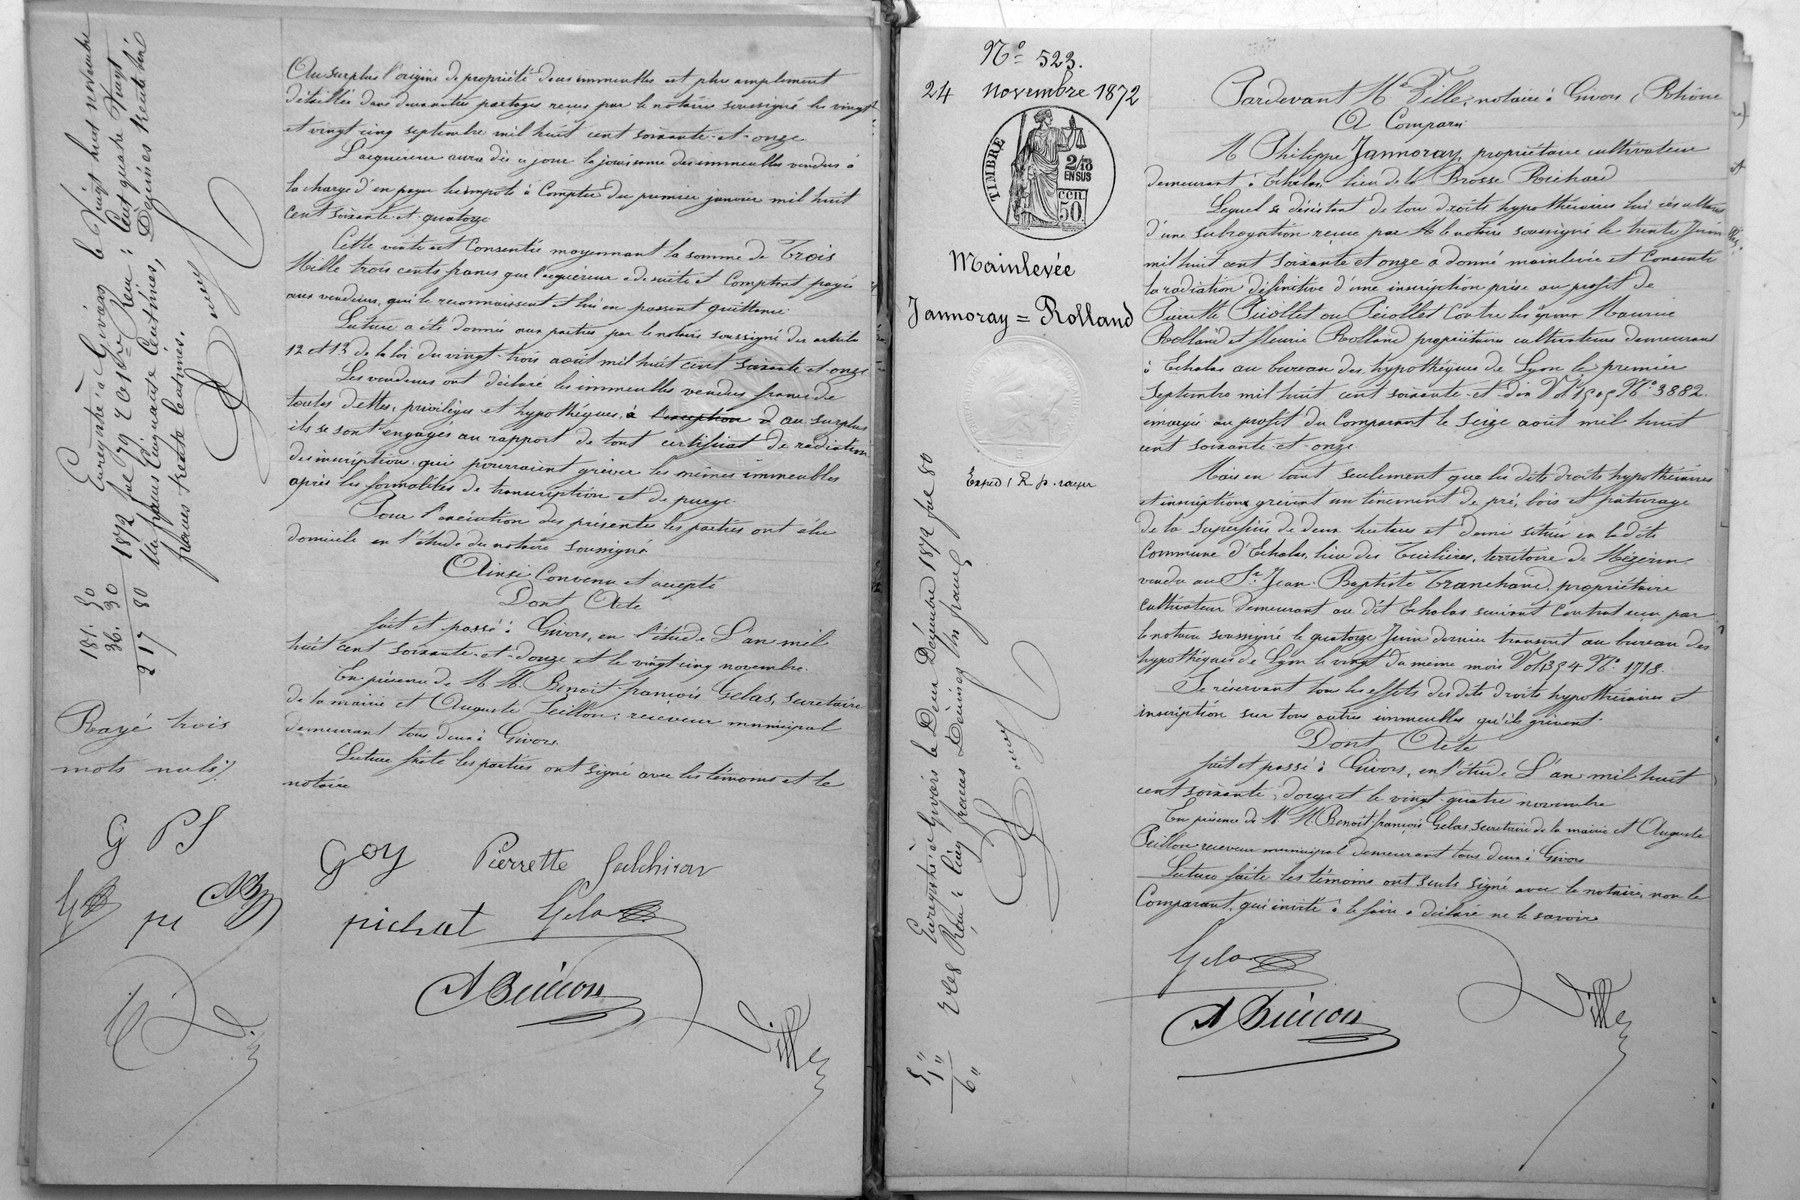 Au surplus l'origine de propriété de ces immeubles est plus amplement
détaillée dans deux actes partages reçus par le notaire soussigné les vingt
et vingt cinq septembre mil huit cent soixante-et-onze
L'acquereur aura dès ce jour la jouissance des immeubles vendus à
la charge d'en payer les impôts à compter du premier janvier mil huit
cent soixante et quatorze
Cette vente est consentie moyennant la somme de Trois
Mille trois cents francs que l'acquéreur a de suite et comptant payés
aux vendeurs, qui le reconnaissent et lui en passent quittance
Lecture a été donnée aux parties par le notaire soussigné des articles
12 et 13 de la loi du vingt-trois août mil huit cent soixante et onze
Les vendeurs ont déclaré les immeubles vendus francs de
toutes dettes, privilèges et hypothèques, à l'exception d au surplus
ils se sont engagés au rapport de tout certificat de radiation
des inscriptions qui pourraient grever les mêmes immeubles
après les formalités de transcription et de purge.
Pour l'exécution des présentes les parties ont élu
domicile en l'étude du notaire soussigné
Ainsi convenu et accepté
Dont Acte
fait et passé à Givors, en l'étude L'an mil
huit cent soixante-et-douze et le vingt cinq novembre.
En présence de M M. Benoit-françois Gelas, secrétaire
de la mairie et Auguste Peillon, receveur municipal
demeurant tous deux à Givors.
Lecture faite les parties ont signé avec les témoins et le
notaire
Goy Pierrette Guichiran
pichat Gelas
A Peillon Ville
Enregistré à Givors le Vingt huit novembre
1872 fol 79 Reçu: Cent quatre vingt
un francs cinquante centimes, Décimes trente six
francs trente centimes.
181. 50
36. 30
217 80
Rayé trois
mots nuls
G PG
N° 523.
24 novembre 1872
TIMBRE
2/10
EN SUS
50 CEN.
Mainlevée
Jannoray = Rolland
Exped
Enregistré à Givors le Deux Décembre 1872 fol 80
Reçu: Cinq francs Décimes Un franc
5 "
1 "
6 "
Pardevant Me Ville, notaire à Givors (Rhône
A Comparu
M Philippe Jannoray, propriétaire cultivateur
demeurant à Echalas lieu de la Brosse Richard
Lequel se désistant de tous droits hypothécaires lui résultant
d'une subrogation reçue par Me le notaire soussigné le trente Juin
mil huit cent soixante et onze a donné mainlevée et consente
la radiation définitive d'une inscription prise au profit de
Piollet ou Peiollet Contre les époux Maurice
Rolland et fleurie Rolland propriétaires cultivateurs demeurant
à Echalas au bureau des hypothèques de Lyon le premier
Septembre mil huit cent soixante-et-dix N° 3882.
émargée au profit du Comparant le seize août mil huit
cent soixante-et-onze
Mais en tant seulement que les dits droits hypothécaires
et inscriptions grèvent un tènement de pré, bois et pâturage
de la superficie de deux hectares et demi situé en la dite
Commune d'Echalas, lieu des Tuilières, territoire de Mézerin
vendu au Sr. Jean-Baptiste Tranchand, propriétaire
cultivateur demeurant au dit Echalas suivant contrat reçu par
le notaire soussigné le quatorze Juin dernier transcrit au bureau des
hypothèques de Lyon le vingt du même mois Vol 1394 N° 1718.
Se réservant tous les effets des dits droits hypothécaires et
inscription sur tous autres immeubles qu'ils grèvent.
Dont Acte
fait et passé à Givors, en l'étude L'an mil huit
cent soixante, douze et le vingt-quatre novembre
En présence de M M. Benoit-françois Gelas, secrétaire de la mairie et Auguste
Peillon receveur municipal demeurant tous deux à Givors
Lecture faite les témoins ont seuls signé avec le notaire, non le
Comparant, qui invité à le faire a déclaré ne le savoir
Gelas
A Peillon Ville